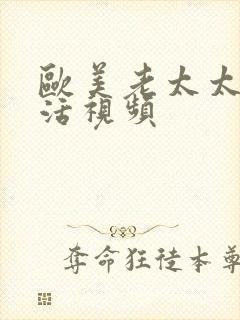 歐美老太太
活視頻
奪命狂徒本尊